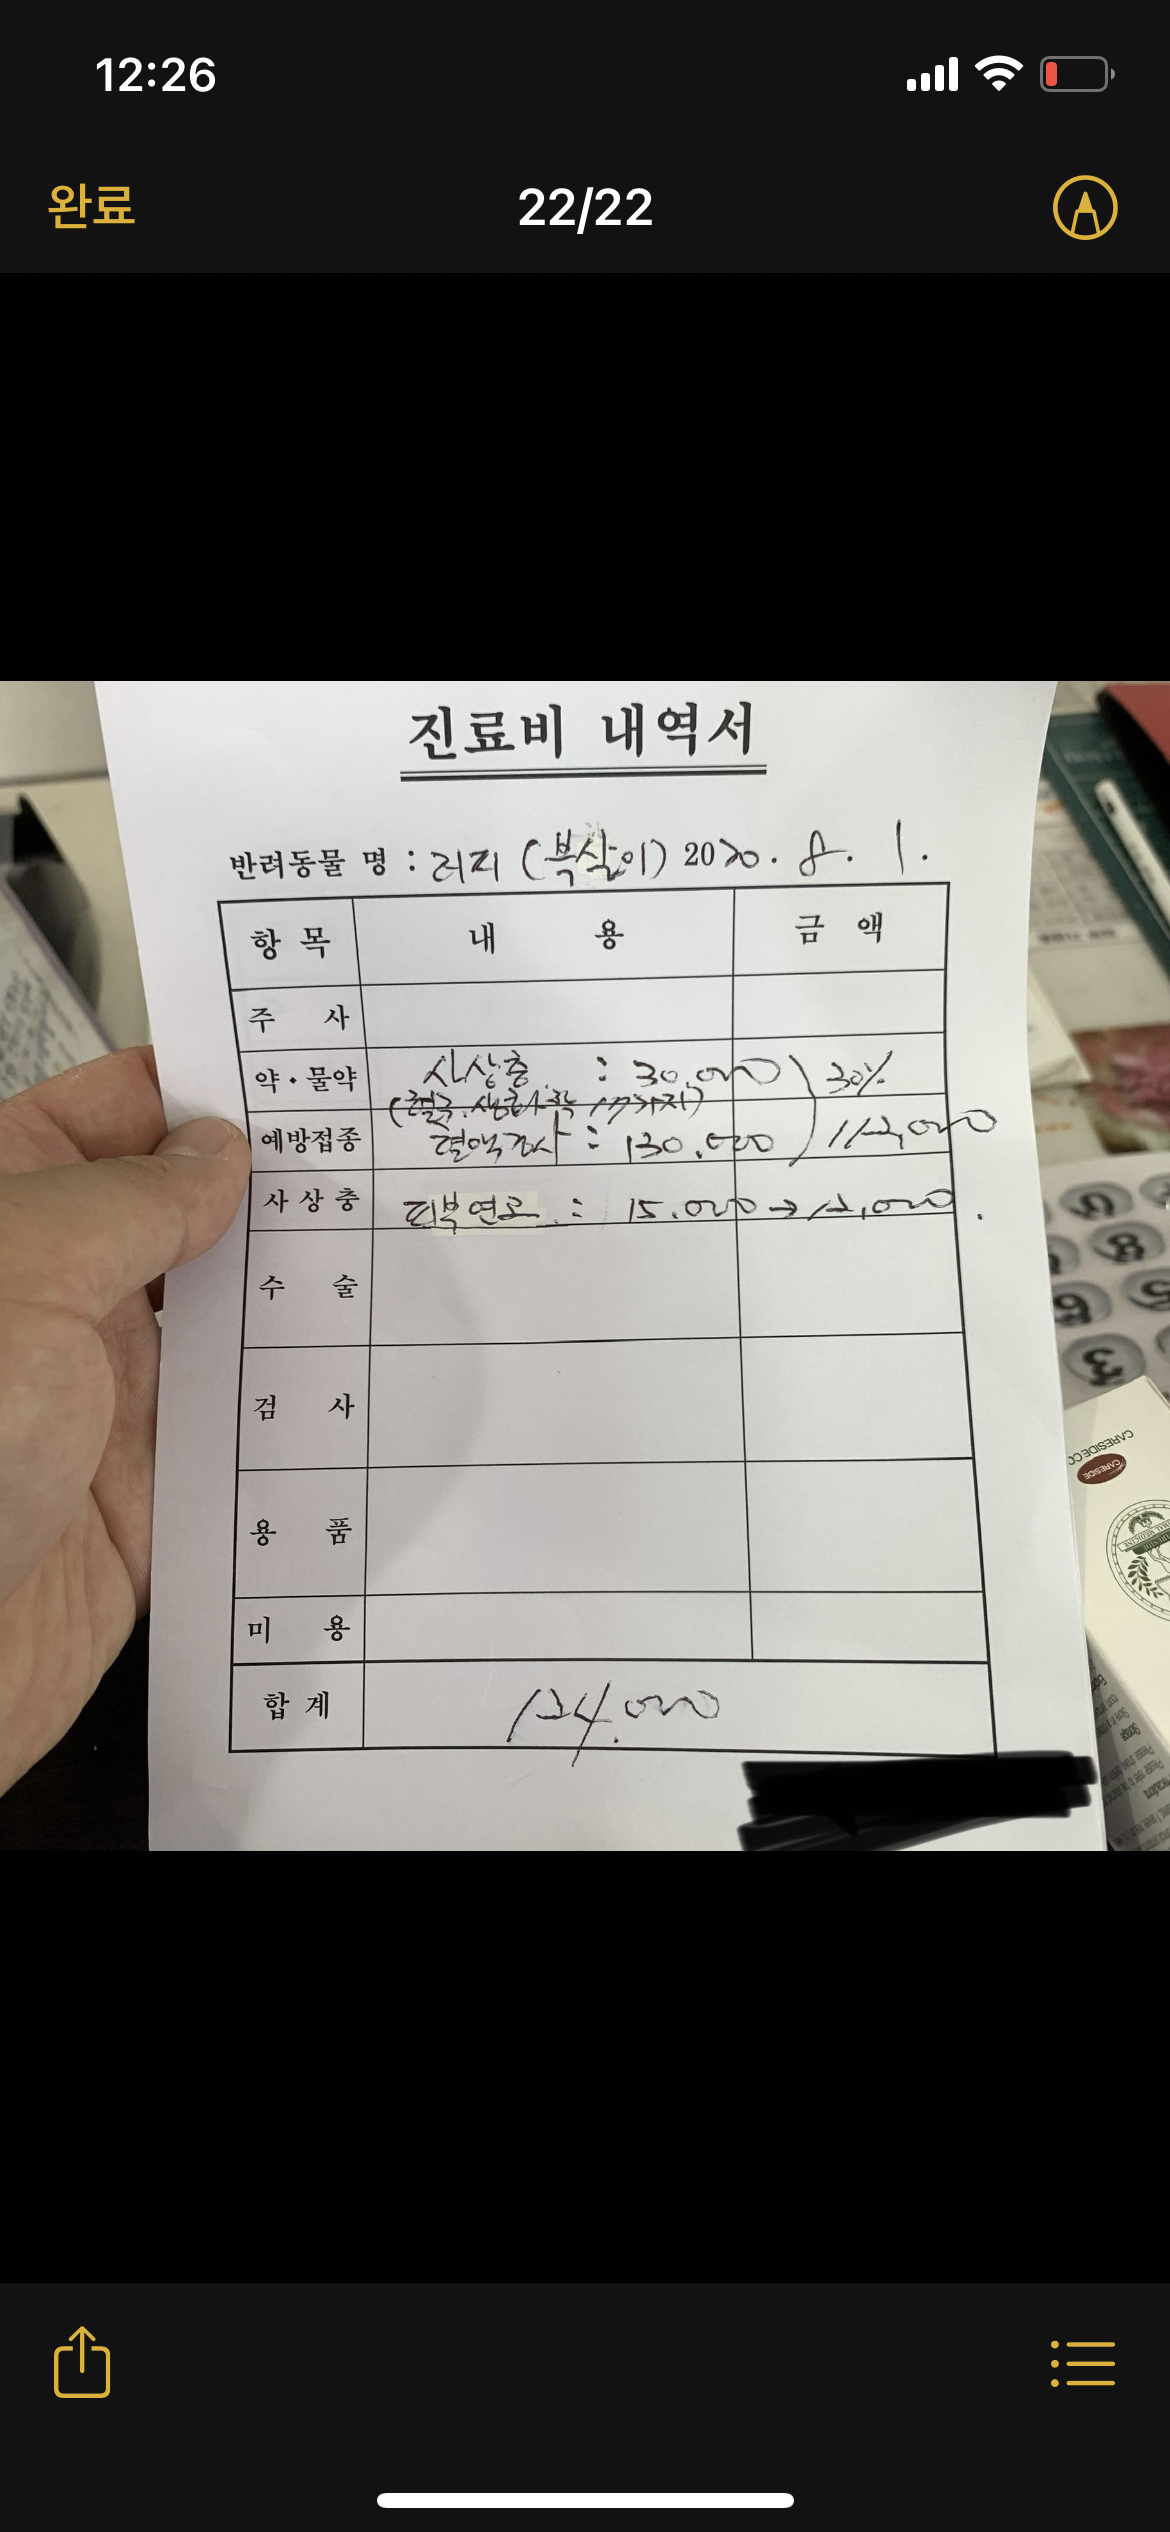 12:26
완료
22/22
진료비 내역서
반려동물 명 : 러피 (복실이) 2020. 8. 1.
항 목 내 용 금 액
주 사
약·물약 사상충 : 30,000 30%
(혈구, 생화학 17가지)
예방접종 혈액검사 : 130,000 112,000
사상충 피부연고 : 15,000 → 12,000.
수 술
검 사
용 품
미 용
합 계 124,000
CARESIDE CO
CARESIDE